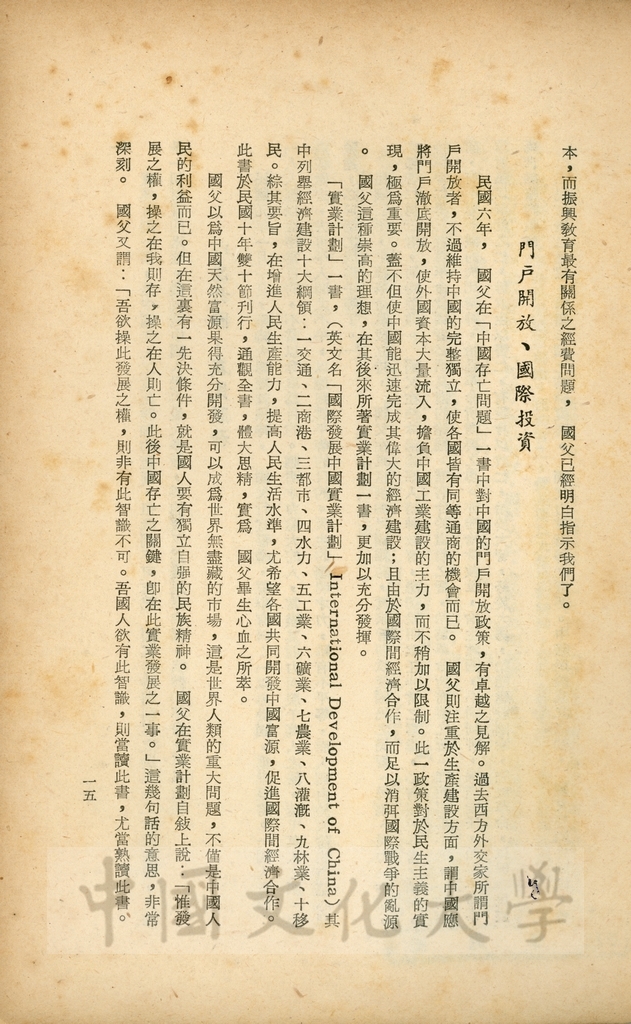 本，而振興敎育最有關係之經費問題，　國父已經明白指示我們了。
門戶開放、國際投資
民國六年，　國父在「中國存亡問題」一書中對中國的門戶開放政策，有卓越之見解。過去西方外交家所謂門
戶開放者，不過維持中國的完整獨立，使各國皆有同等通商的機會而已。　國父則注重於生產建設方面，謂中國應
將門戶澈底開放，使外國資本大量流入，擔負中國工業建設的主力，而不稍加以限制。此一政策對於民生主義的實
現，極爲重要。蓋不但使中國能迅速完成其偉大的經濟建設；且由於國際間經濟合作，而足以消弭國際戰爭的亂源
。　國父這種崇高的理想，在其後來所著實業計劃一書，更加以充分發揮。
「實業計劃」一書，（英文名「國際發展中國實業計劃」International Development of China）其
中列舉經濟建設十大綱領：一交通、二商港、三都市、四水力、五工業、六礦業、七農業、八灌漑、九林業、十移
民。綜其要旨，在增進人民生產能力，提高人民生活水準，尤希望各國共同開發中國富源，促進國際間經濟合作。
此書於民國十年雙十節刋行，通觀全書，體大思精，實爲　國父畢生心血之所萃。
國父以爲中國天然富源果得充分開發，可以成爲世界無盡藏的市場，這是世界人類的重大問題，不僅是中國人
民的利益而已。但在這裏有一先決條件，就是國人要有獨立自强的民族精神。　國父在實業計劃自敍上說：「惟發
展之權，操之在我則存，操之在人則亡。此後中國存亡之關鍵，卽在此實業發展之一事。」這幾句話的意思，非常
深刻。　國父又謂：「吾欲操此發展之權，則非有此智識不可。吾國人欲有此智識，則當讀此書，尤當熟讀此書。
一五
中國文化大學